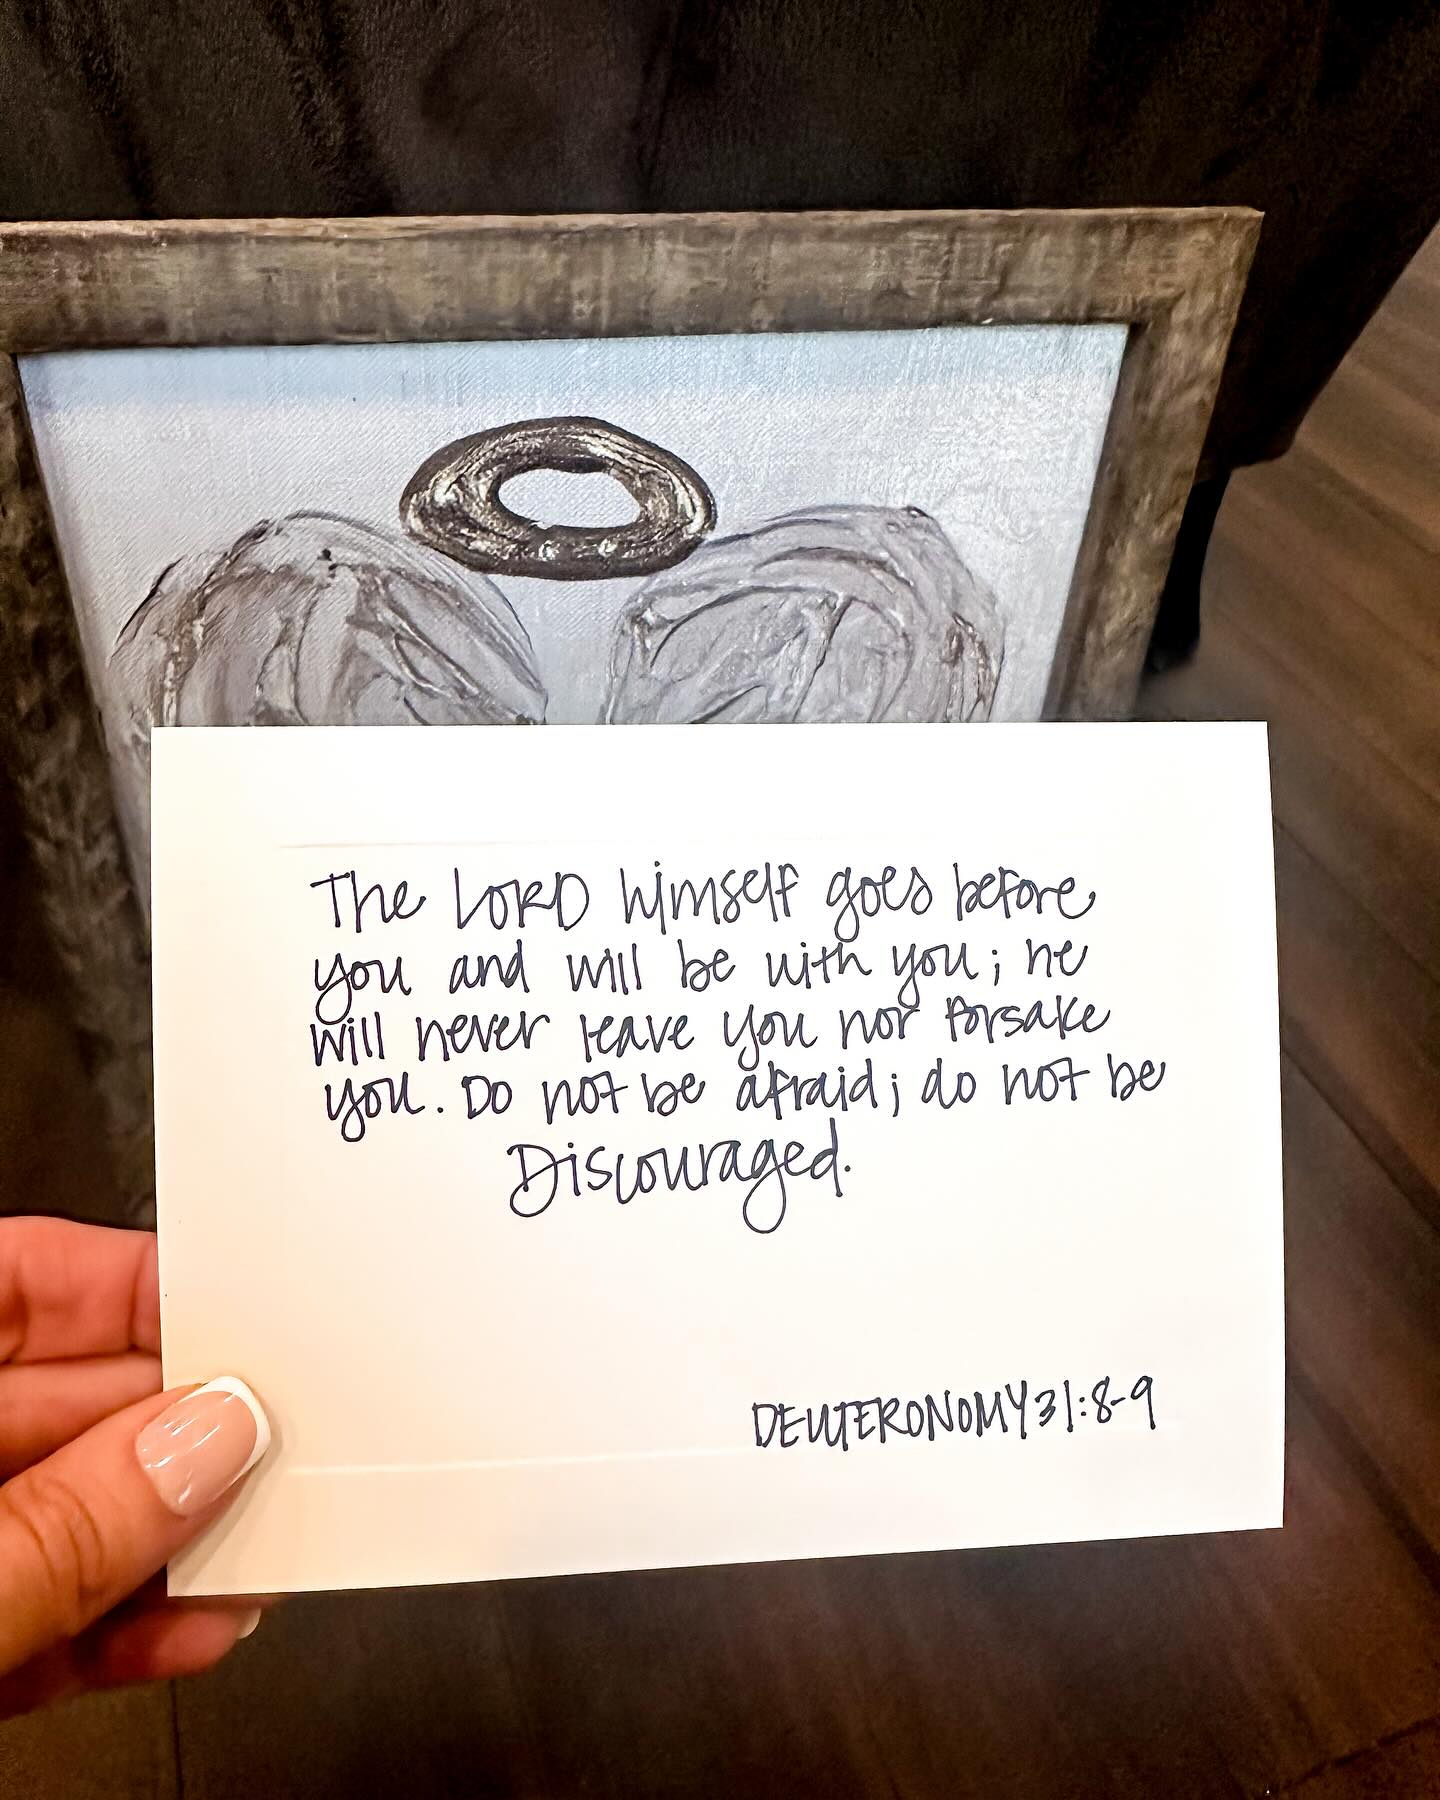 The LORD himself goes before
you and will be with you; he
will never leave you nor forsake
you. Do not be afraid; do not be
Discouraged.
DEUTERONOMY 31:8-9